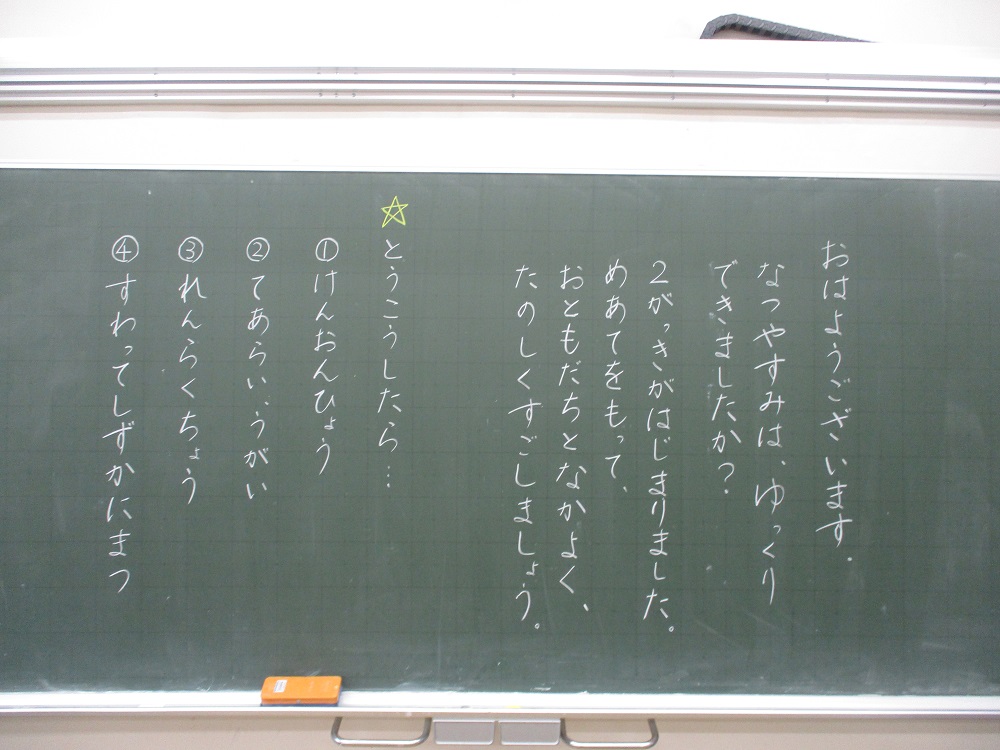 おはようございます。
なつやすみは、ゆっくり
できましたか?
2がっきがはじまりました。
めあてをもって、
おともだちとなかよく、
たのしくすごしましょう。
☆とうこうしたら…
①けんおんひょう
②てあらい、うがい
③れんらくちょう
④すわってしずかにまつ